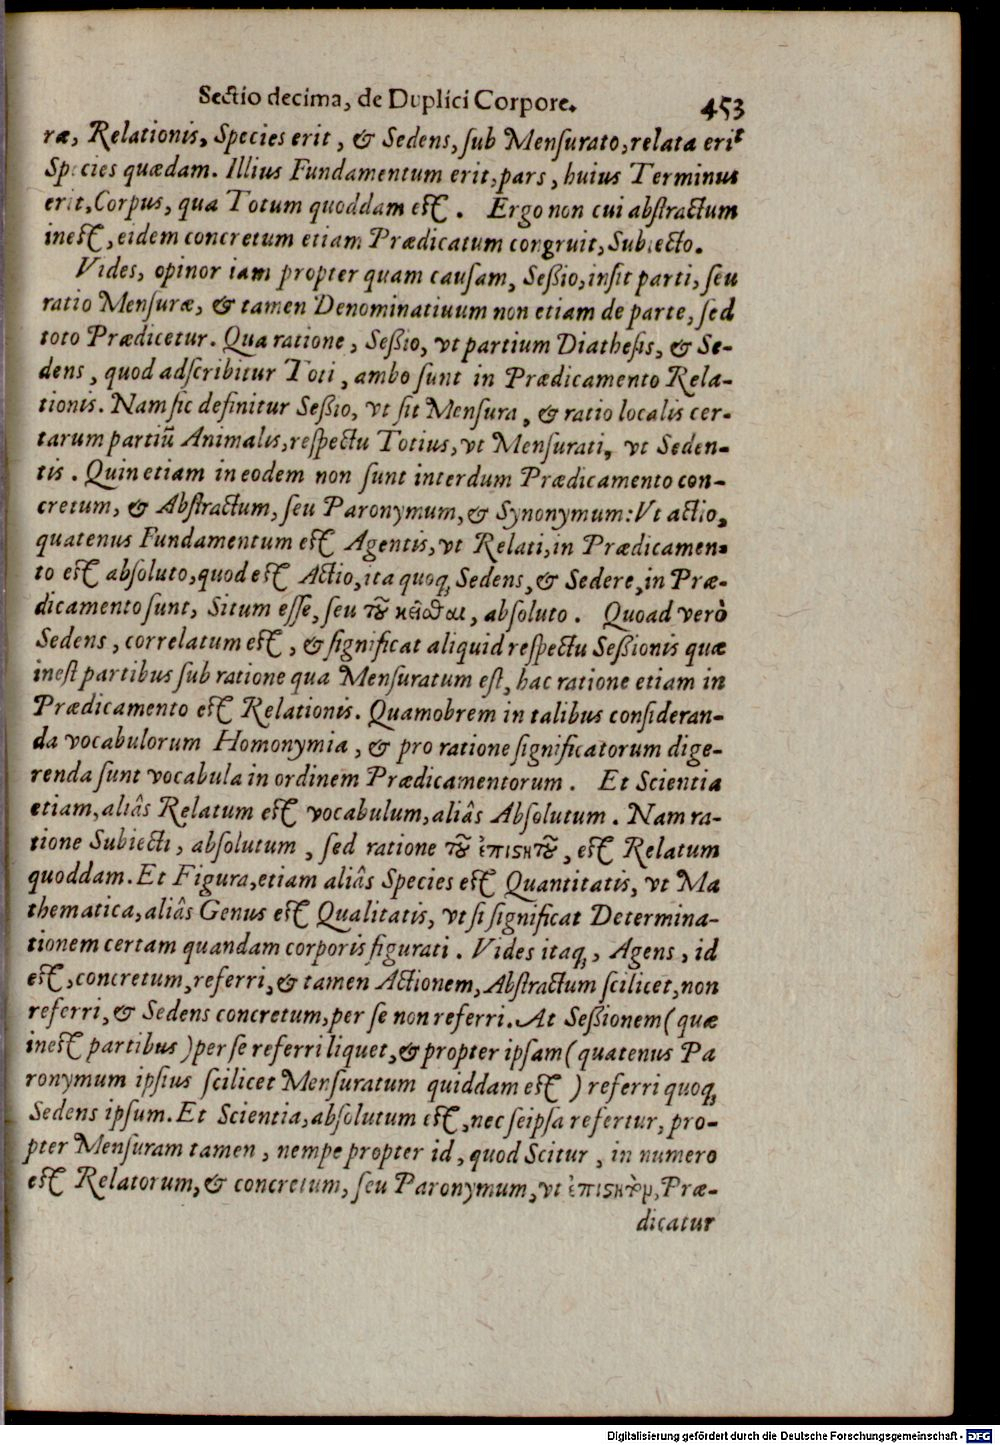 Sectio decima, de Duplici Corpore. 453
ræ, Relationis, Species erit, & Sedens, sub Mensurato, relata erit
Species quædam. Illius Fundamentum erit, pars, huius Terminus
erit, Corpus, qua Totum quoddam est. Ergo non cui abstractum
inest, eidem concretum etiam Prædicatum congruit, Subiecto.
Vides, opinor iam propter quam causam, Seßio, insit parti, seu
ratio Mensuræ, & tamen Denominatiuum non etiam de parte, sed
toto Prædicetur. Qua ratione, Seßio, vt partium Diathesis, & Se-
dens, quod adscribitur Toti, ambo sunt in Prædicamento Rela-
tionis. Nam sic definitur Seßio, vt sit Mensura, & ratio localis cer-
tarum partiū Animalis, respectu Totius, vt Mensurati, vt Seden-
tis. Quin etiam in eodem non sunt interdum Prædicamento con-
cretum, & Abstractum, seu Paronymum, & Synonymum: Vt actio,
quatenus Fundamentum est Agentis, vt Relati, in Prædicamen-
to est absoluto, quod est Actio, ita quoq, Sedens, & Sedere, in Præ-
dicamento sunt, Situm esse, seu τȣ͂ κεῖσθαι, absoluto. Quoad verò
Sedens, correlatum est, & significat aliquid respectu Seßionis quæ
inest partibus sub ratione qua Mensuratum est, hac ratione etiam in
Prædicamento est Relationis. Quamobrem in talibus consideran-
da vocabulorum Homonymia, & pro ratione significatorum dige-
renda sunt vocabula in ordinem Prædicamentorum. Et Scientia
etiam, aliâs Relatum est vocabulum, aliâs Absolutum. Nam ra-
tione Subiecti, absolutum, sed ratione τȣ͂ ἐπιϛητȣ͂, est Relatum
quoddam. Et Figura, etiam aliâs Species est Quantitatis, vt Ma
thematica, aliâs Genus est Qualitatis, vt si significat Determina-
tionem certam quandam corporis figurati. Vides itaq, Agens, id
est, concretum, referri, & tamen Actionem, Abstractum scilicet, non
referri, & Sedens concretum, per se non referri. At Seßionem (quæ
inest partibus) per se referri liquet, & propter ipsam (quatenus Pa
ronymum ipsius scilicet Mensuratum quiddam est) referri quoq,
Sedens ipsum. Et Scientia, absolutum est, nec seipsa refertur, pro-
pter Mensuram tamen, nempe propter id, quod Scitur, in numero
est Relatorum, & concretum, seu Paronymum, vt ἐπιϛητὸμ, Præ-
dicatur
Digitalisierung gefördert durch die Deutsche Forschungsgemeinschaft - DFG